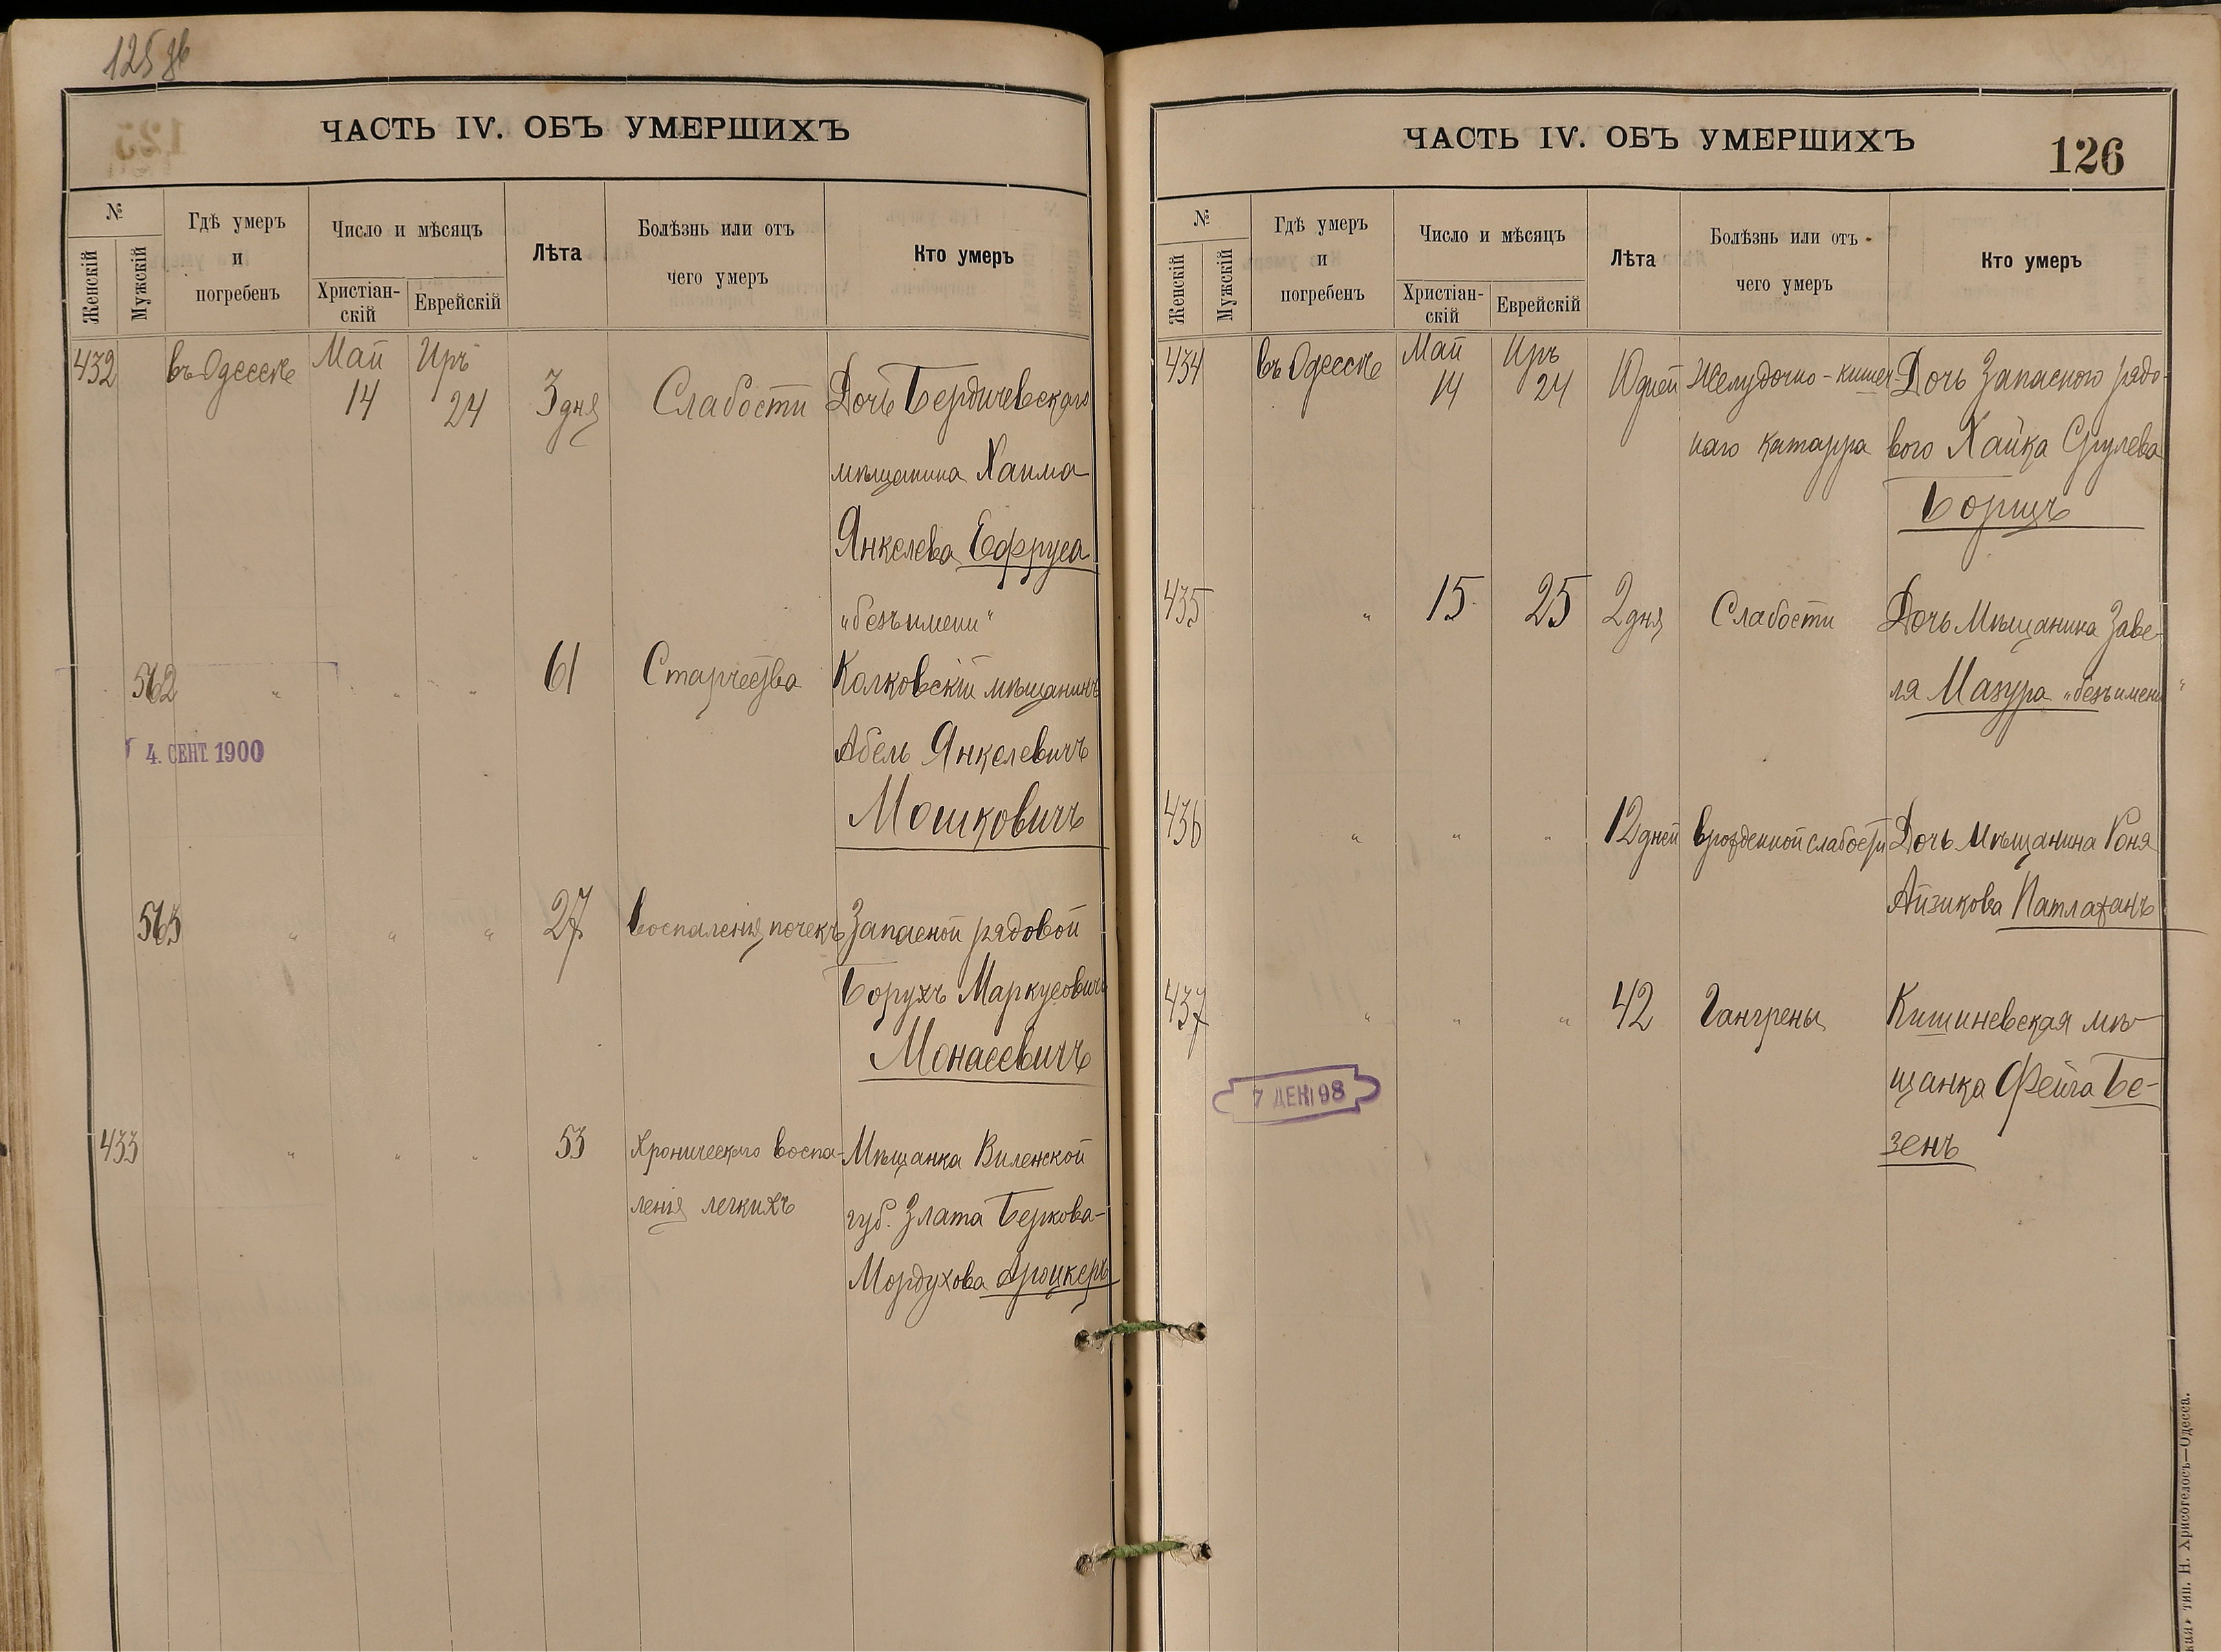 125 об
ЧАСТЬ IV. ОБЪ УМЕРШИХЪ
№
Женскій
Мужскій
Гдѣ умеръ
и
погребенъ
Число и мѣсяцъ
Христіан-
скій
Еврейскій
Лѣта
Болѣзнь или отъ
чего умеръ
Кто умеръ
432 въ Одессѣ Май 14 Иръ 24 3 дня Слабости Дочь Бердичевскаго
мѣщанина Хаима
Янкелева Ефруса
„безъ имени“
562 " " " 61 Старчества Колковскій мѣщанинъ
4. СЕНТ. 1900
Абель Янкелевичъ
Мошковичъ
563 " " " 27 Воспаленія почекъ Запасной рядовой
Борухъ Маркусовичъ
Монасевичъ
433 " " " 53 Хроническаго воспа- Мѣщанка Виленской
ленія легкихъ губ. Злата Беркова-
Мордухова Ароцкеръ
ЧАСТЬ IV. ОБЪ УМЕРШИХЪ
126
№
Женскій
Мужскій
Гдѣ умеръ
и
погребенъ
Число и мѣсяцъ
Христіан-
скій
Еврейскій
Лѣта
Болѣзнь или отъ
чего умеръ
Кто умеръ
434 въ Одессѣ Май 14 Иръ 24 10 дней Желудочно-кишеч- Дочь Запасного рядо-
наго катарра вого Хайка Срулева
Борщъ
435 " 15 25 2 дня Слабости Дочь Мѣщанина Заве-
ля Мазура „безъ имени“
436 " " " 12 дней Врожденной слабости Дочь Мѣщанина Роня
Айзикова Патлажанъ
437 " " " 42 Гангрены Кишиневская мѣ-
щанка Фейга Бе-
7 ДЕК 98
зенъ
тип. Н. Хрисогелосъ—Одесса.